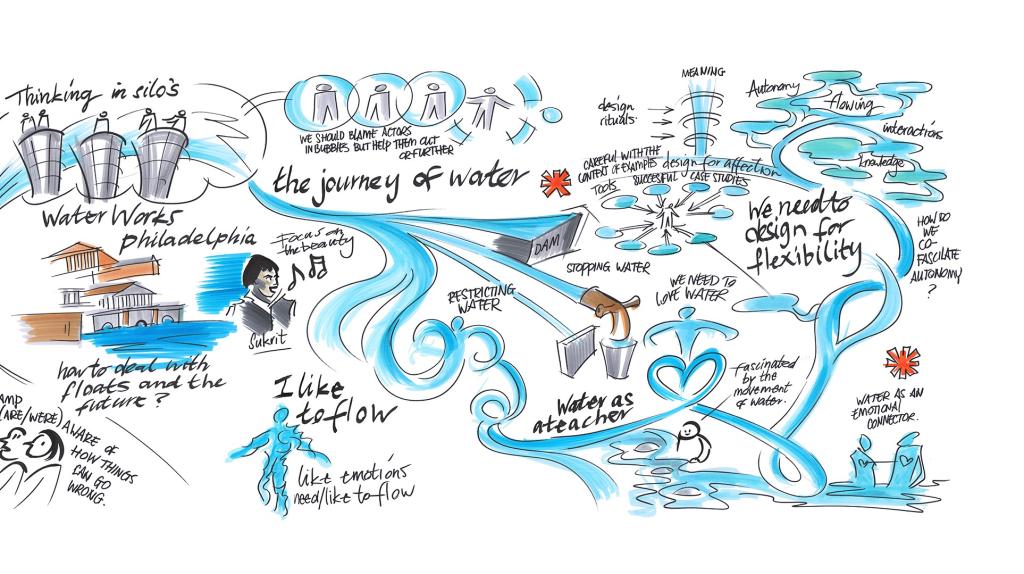 Thinking in silo's
Water Works
philadelphia
Focus on
the beauty
Sukrit
how to deal with
floats and the
future?
AMP
(ARE/WERE) AWARE OF
HOW THINGS
CAN GO
WRONG.
WE SHOULD BLAME ACTORS
IN BUBBLES BUT HELP THEM OUT
OR FURTHER
the journey of water
DAM
STOPPING WATER
RESTRICTING
WATER
I like
to flow
like emotions
need/like to flow
Water as
a teacher
MEANING
design
rituals.
CAREFUL WITH THE
CONTEXT OF EXAMPLES
TOOLS
design for affection
SUCCESFUL CASE STUDIES
WE NEED TO
LOVE WATER
Fascinated
by the
movement
of water.
Autonomy
flowing
interactions
knowledge
We need to
design for
flexibility
HOW DO
WE
CO-
FASCILATE
AUTONOMY
?
WATER AS AN
EMOTIONAL
CONNECTOR.